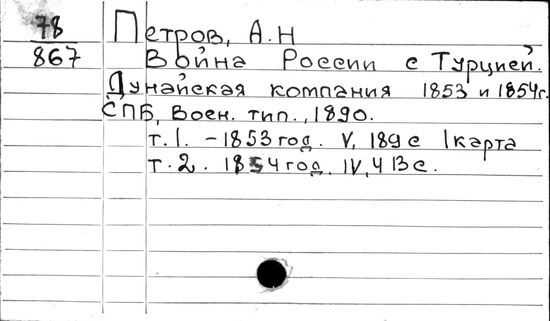 78
867
Петров, А.Н
Война России с Турцией.
Дунайская компания 1853 и 1854г.
СПБ, Воен. тип., 1890.
т.1. - 1853 год. V, 189 с 1 карта
т.2. 1854 год. IV, 413 с.